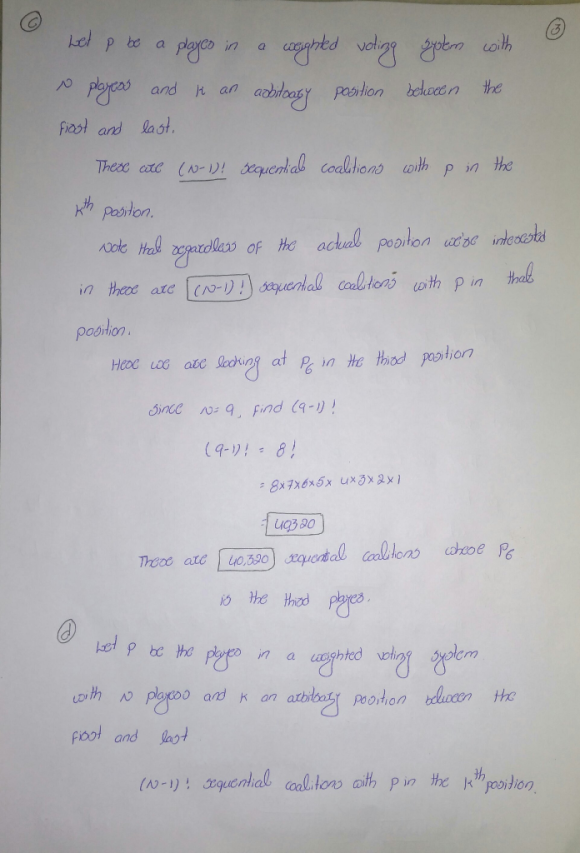 (c) (3)
Let P be a player in a weighted voting system with
N players and K an arbitrary position between the
First and last.
There are (N-1)! sequential coalitions with P in the
Kth position.
Note that regardless of the actual position we're interested
in there are (N-1)! sequential coalitions with P in that
position.
Here we are looking at P6 in the third position
Since N=9, Find (9-1)!
(9-1)! = 8!
= 8×7×6×5×4×3×2×1
= 40320
There are 40,320 sequential coalitions whose P6
is the third player.
(d)
Let P be the player in a weighted voting system
with N players and K an arbitrary position between the
First and last
(N-1)! sequential coalitions with P in the Kth position.